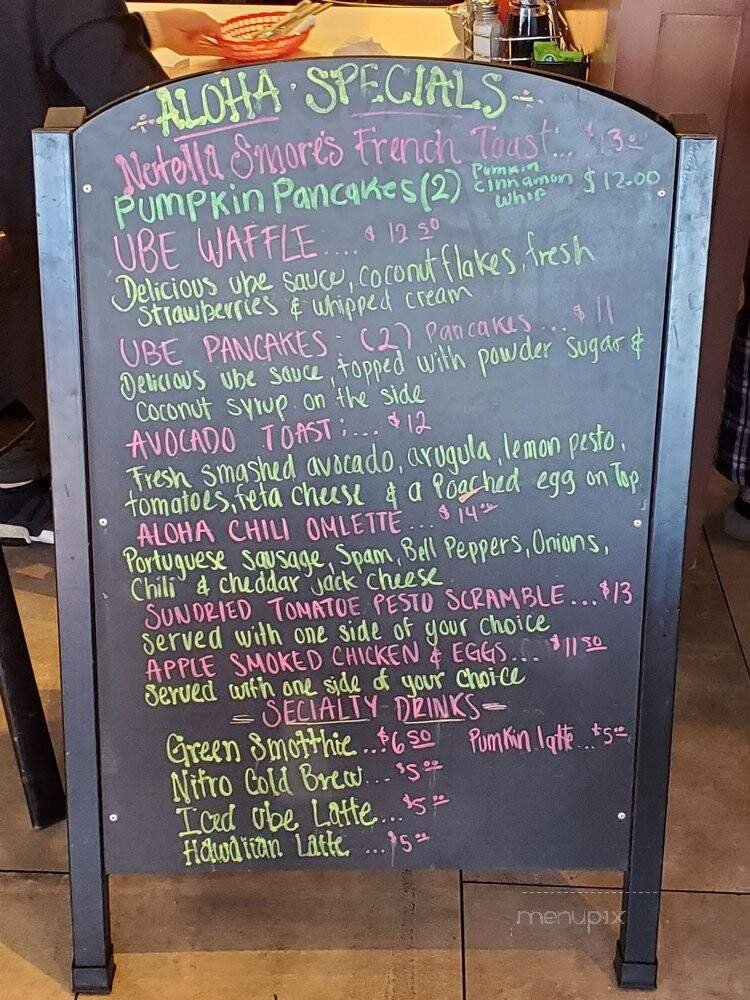 ALOHA · SPECIALS
Nutella Smore's French Toast... $13.00
Pumpkin Pancakes (2) Pumkin cinnamon whip $12.00
UBE WAFFLE.... $12 50
Delicious ube sauce, coconut flakes, fresh
strawberries & whipped cream
UBE PANCAKES - (2) Pancakes... $11
Delicious ube sauce, topped with powder sugar &
coconut syrup on the side
AVOCADO TOAST:... $12
Fresh smashed avocado, arugula, lemon pesto,
tomatoes, feta cheese & a Poached egg on Top.
ALOHA CHILI OMLETTE... $14.00
Portuguese Sausage, Spam, Bell Peppers, Onions,
Chili & cheddar jack cheese
SUNDRIED TOMATOE PESTO SCRAMBLE...$13
Served with one side of your choice
APPLE SMOKED CHICKEN & EGGS... $11 50
Served with one side of your choice
= SECIALTY DRINKS =
Green Smotthie...$6 50 Pumkin latte...$5.00
Nitro Cold Brew... $5.00
Iced Ube Latte... $5.00
Hawaiian Latte ...$5.00
menupix